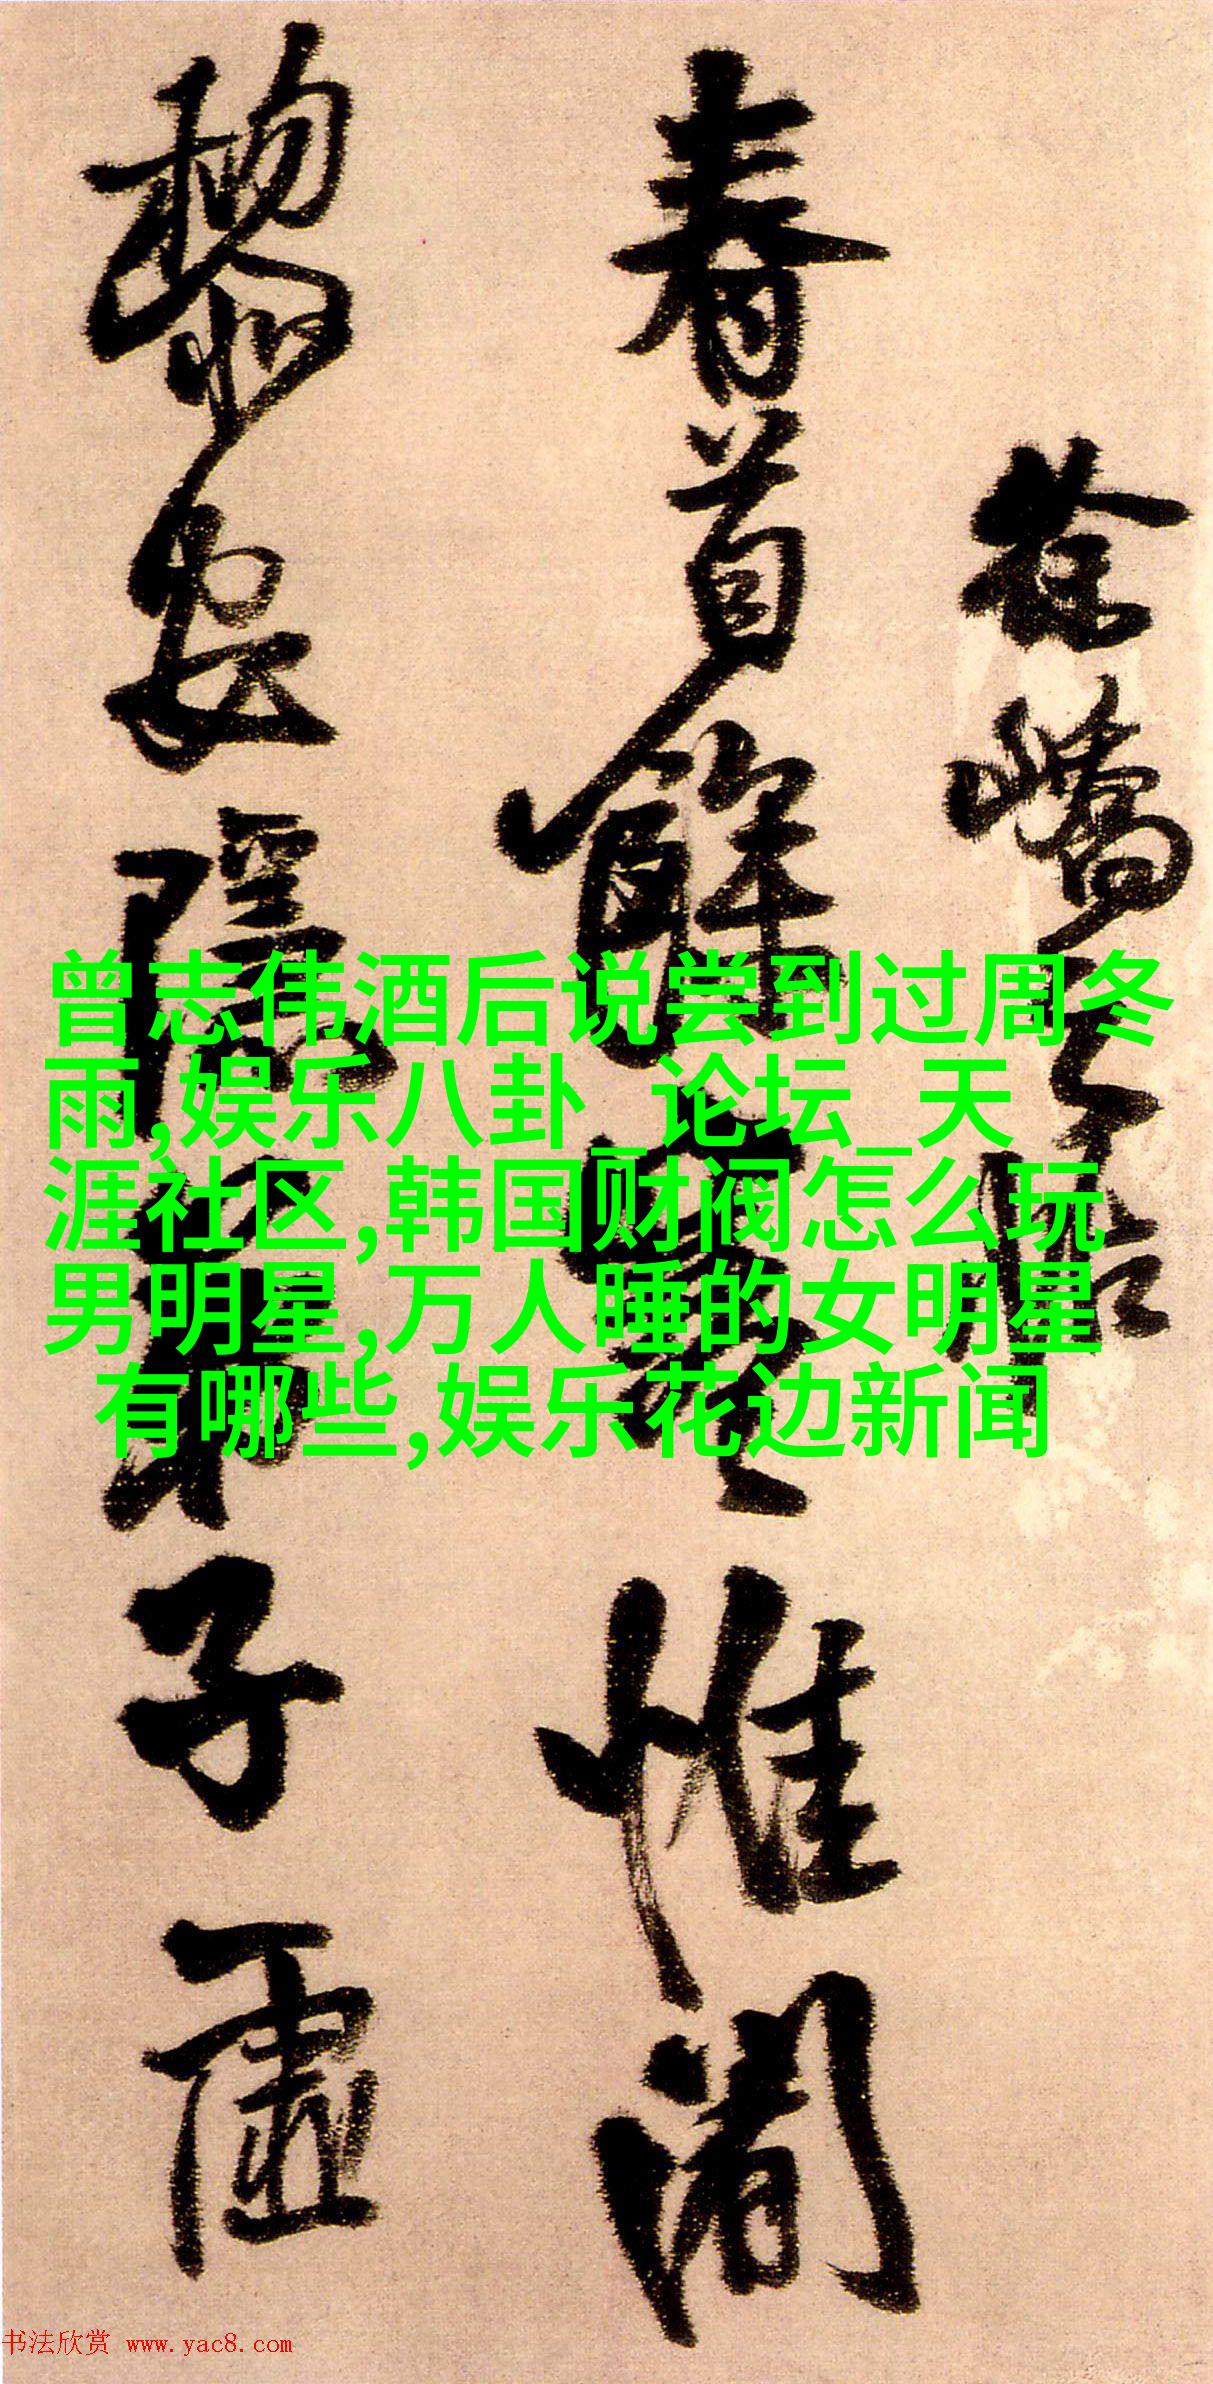 徐嶠之帖
春首餘寒惟闍
黎安隱弟子虛
曾志伟酒后说尝到过周冬
雨,娱乐八卦_论坛_天
涯社区,韩国财阀怎么玩
男明星,万人睡的女明星
有哪些,娱乐花边新闻
书法欣赏 www.yac8.com